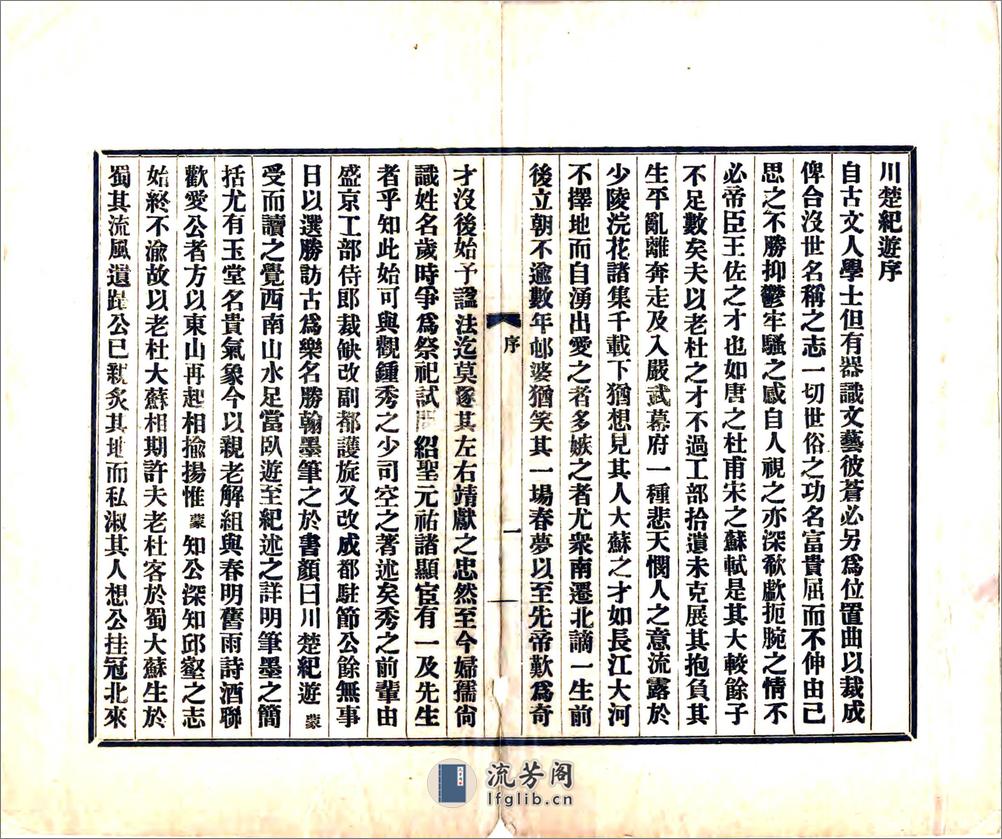 川楚紀遊序
自古文人學士但有器識文藝彼蒼必另爲位置曲以裁成
俾合沒世名稱之志一切世俗之功名富貴屈而不伸由己
思之不勝抑鬱牢騷之感自人視之亦深欷歔扼腕之情不
必帝臣王佐之才也如唐之杜甫宋之蘇軾是其大較餘子
不足數矣夫以老杜之才不過工部拾遺未克展其抱負其
生平亂離奔走及入嚴武幕府一種悲天憫人之意流露於
少陵浣花諸集千載下猶想見其人大蘇之才如長江大河
不擇地而自湧出愛之者多嫉之者尤衆南遷北謫一生前
後立朝不逾數年邨婆猶笑其一場春夢以至先帝歎爲奇
序
一
才沒後始予諡法迄莫邃其左右靖獻之忠然至今婦孺尙
識姓名歲時爭爲祭祀試問紹聖元祐諸顯宦有一及先生
者乎知此始可與觀鍾秀之少司空之著述矣秀之前輩由
盛京工部侍郎裁缺改副都護旋又改成都駐節公餘無事
日以選勝訪古爲樂名勝翰墨筆之於書顏曰川楚紀遊蒙
受而讀之覺西南山水足當臥遊至紀述之詳明筆墨之簡
括尤有玉堂名貴氣象今以親老解組與春明舊雨詩酒聯
歡愛公者方以東山再起相揄揚惟蒙知公深知邱壑之志
始終不渝故以老杜大蘇相期許夫老杜客於蜀大蘇生於
蜀其流風遺躅公已親炙其地而私淑其人想公挂冠北來
流芳阁
lfglib.cn